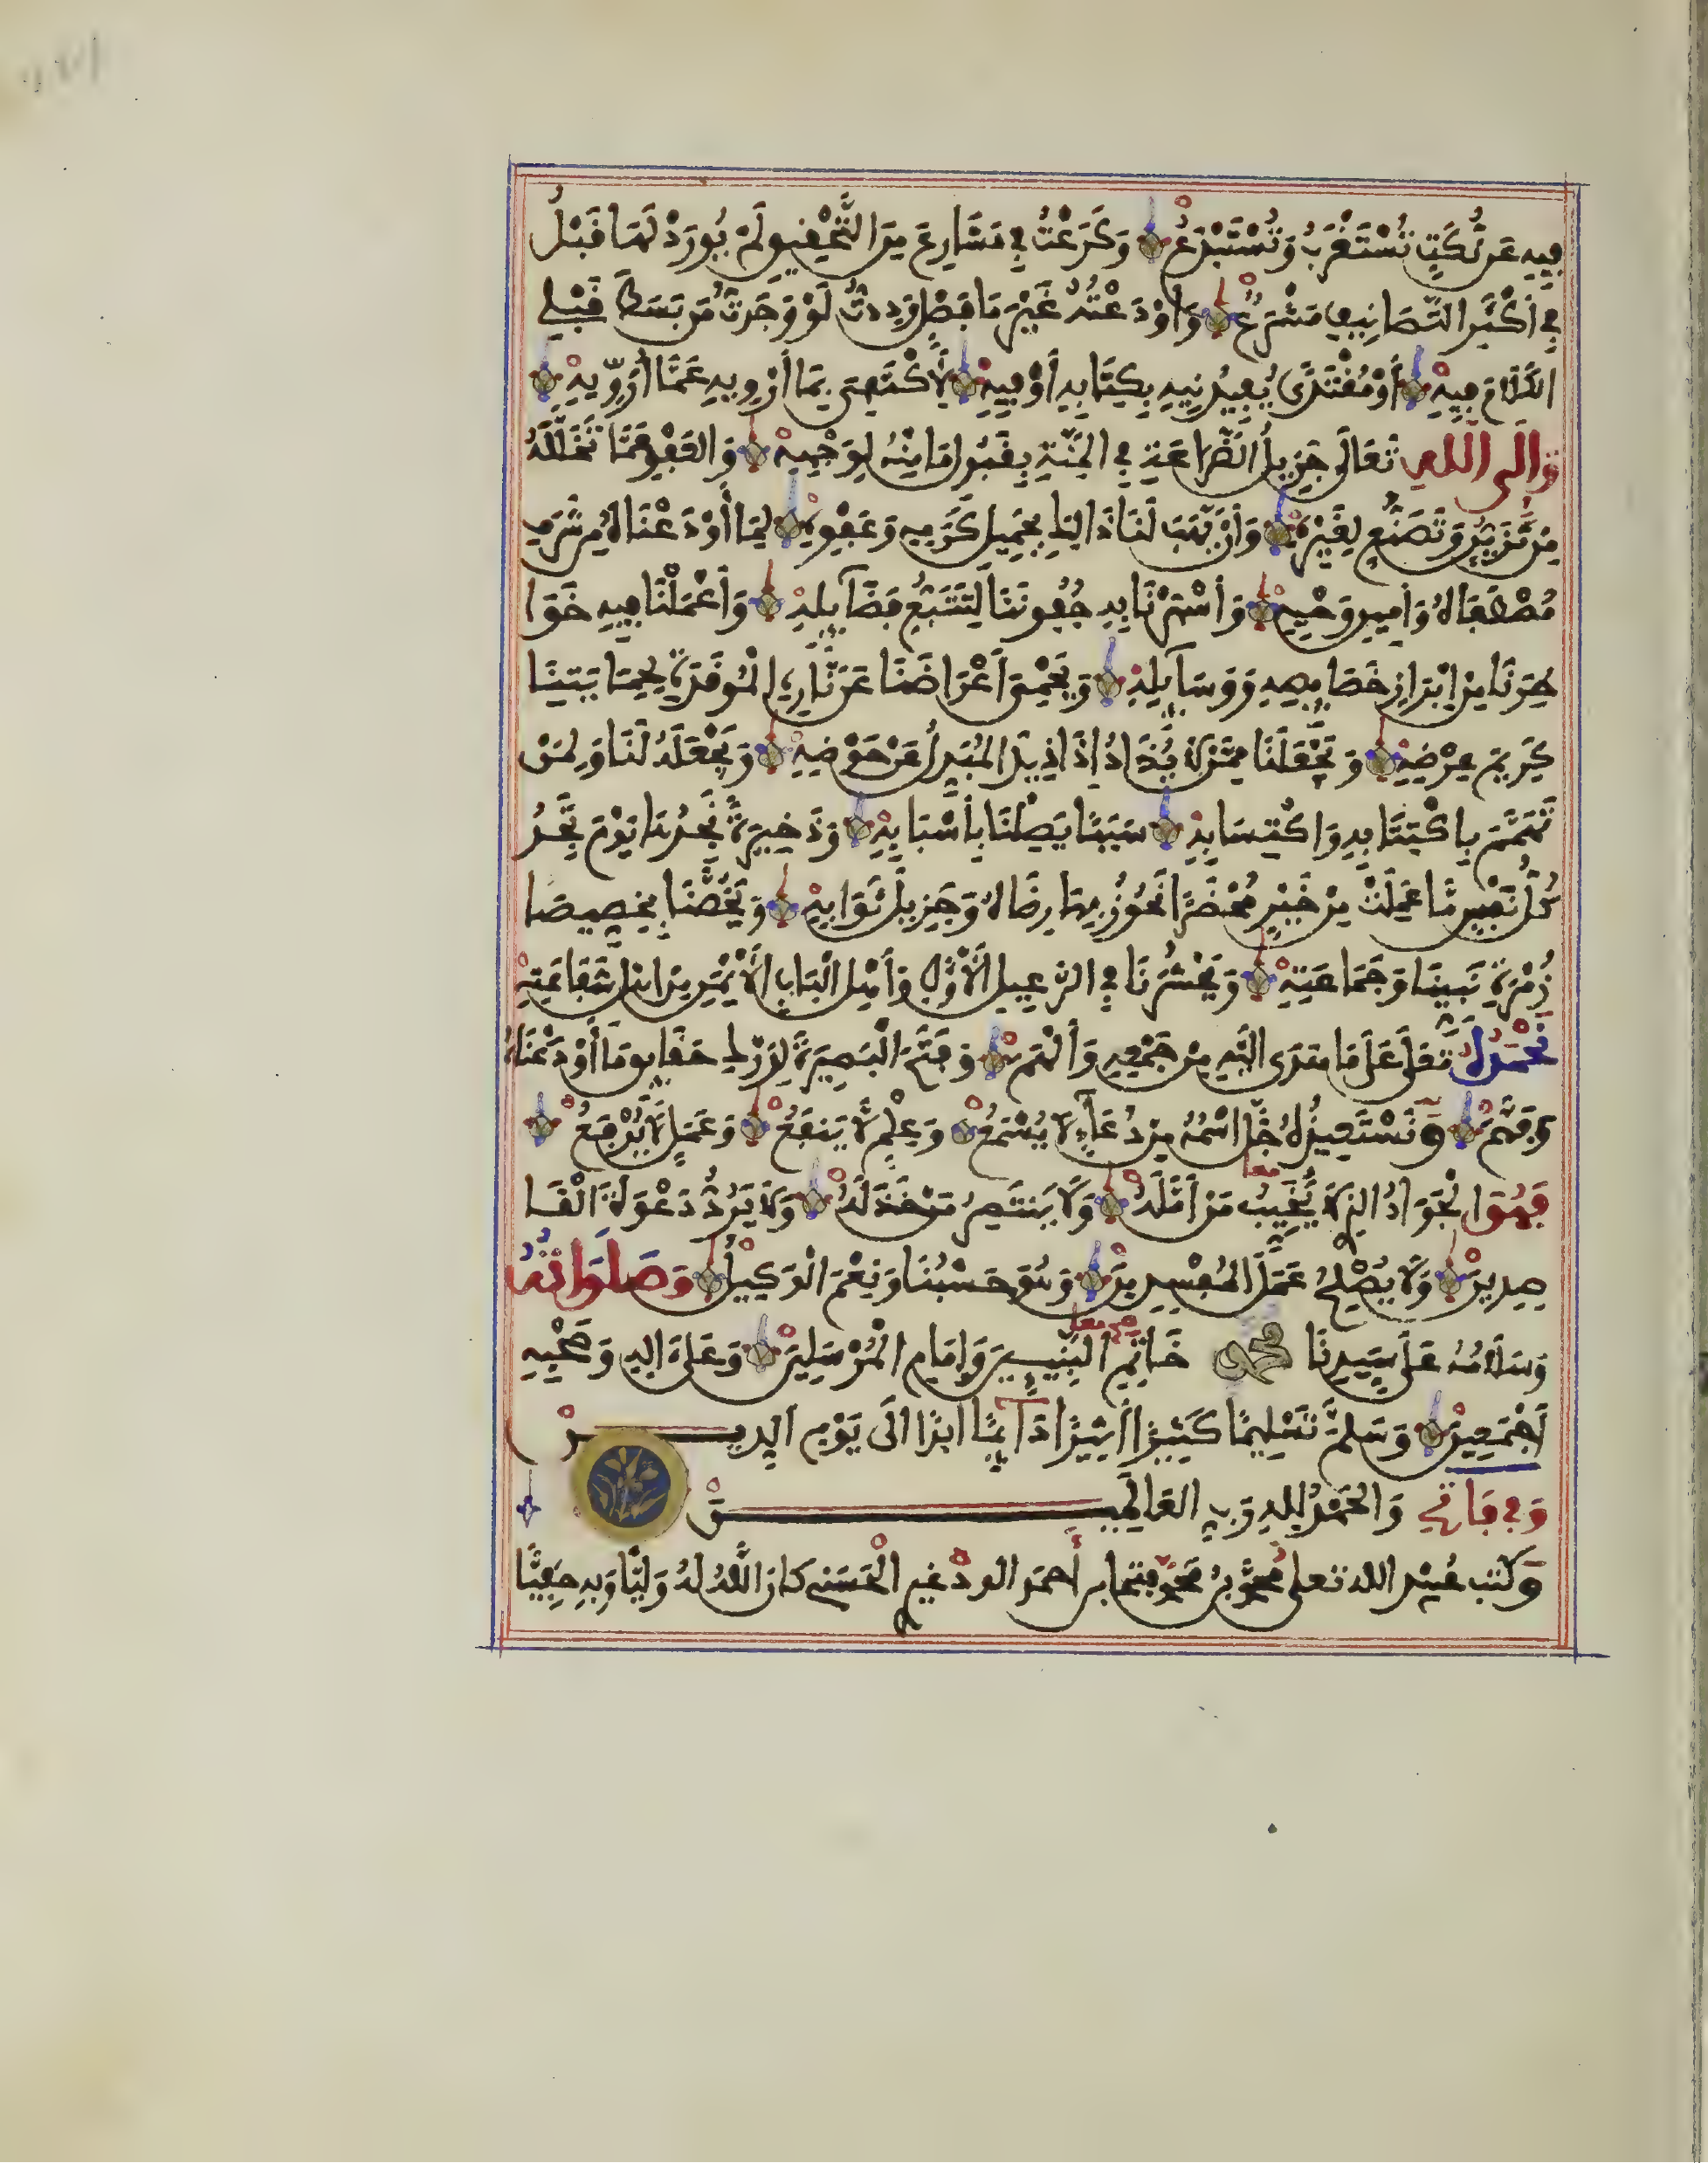 فيه عن نكت تستغرب وتستبدع وكرعت في مشارع من التحقيق لم يورد لها قبل
في أكثر التصانيف مشرع وأودعته غير ما فصل وددت لو وجدت من بسط قبلي
الكلام فيه أو مقتدى يفيدنيه بكتابه أو فيه لأكتفي بما أرويه عما أرويه
وإلى الله تعالى جزيل الضراعة في المنة بقبول ما منه لوجهه والعفو عما تخلله
من تزين وتصنع لغيره وأن يهب لنا ذلك بجميل كرمه وعفوه لما أودعناه من شرف
مصطفاه وأمين وحيه وأسهرنا به جفوننا لتتبع فضائله وأعملنا فيه خوا
طرنا من إبراز خصائصه ووسائله ويحمى أعراضنا عن ناره الموقدة لحمايتنا
كريم عرضه ويجعلنا ممن لا يذاد إذا ذيد المبدل عن حوضه ويجعله لنا ولمن
تهمم باكتتابه واكتسابه سببا يصلنا بأسبابه وذخيرة نجدها يوم تجد
كل نفس ما عملت من خير محضرا نحوز بها رضاه وجزيل ثوابه ويخصنا بخصيصا
زمرة نبينا وجماعته ويحشرنا في الرعيل الأول وأهل الباب الأيمن من أهل شفاعته
نحمده تعلى على ما هدى اليه من جمعه وألهم وفتح البصيرة لدرك حقايق ما أودعناه
وفهم ونستعيذه جل اسمه من دعاء لا يسمع وعلم لا ينفع وعمل لا يرفع
فهو الجواد الذي لا يخيب من أمله ولا ينتصر من خذله ولا يرد دعوة القا
صدين ولا يصلح عمل المفسدين وهو حسبنا ونعم الوكيل وصلواته
وسلامه على سيدنا محمد خاتم النبيين وإمام المرسلين وعلى اله وصحبه
أجمعين وسلم تسليما كثيرا أثيرا دآئما ابدا الى يوم الدين
والحمد لله رب العالمين
وكتب عبد الله تعلى محمد بن أحمد الودغيري الحسني كان الله له وليا وبه حفيا